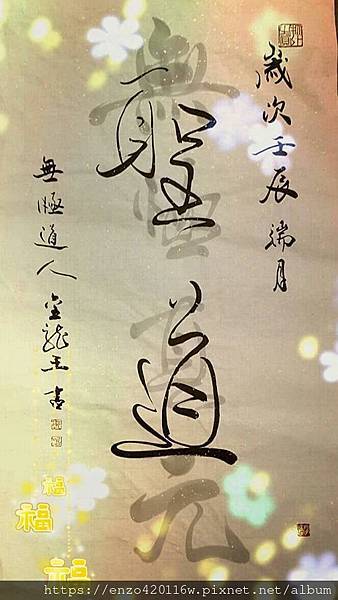 歲次壬辰端月
聖道
無極 元
無極道人金龍 書
福
福
福
https://enzo420116w.pixnet.net/album